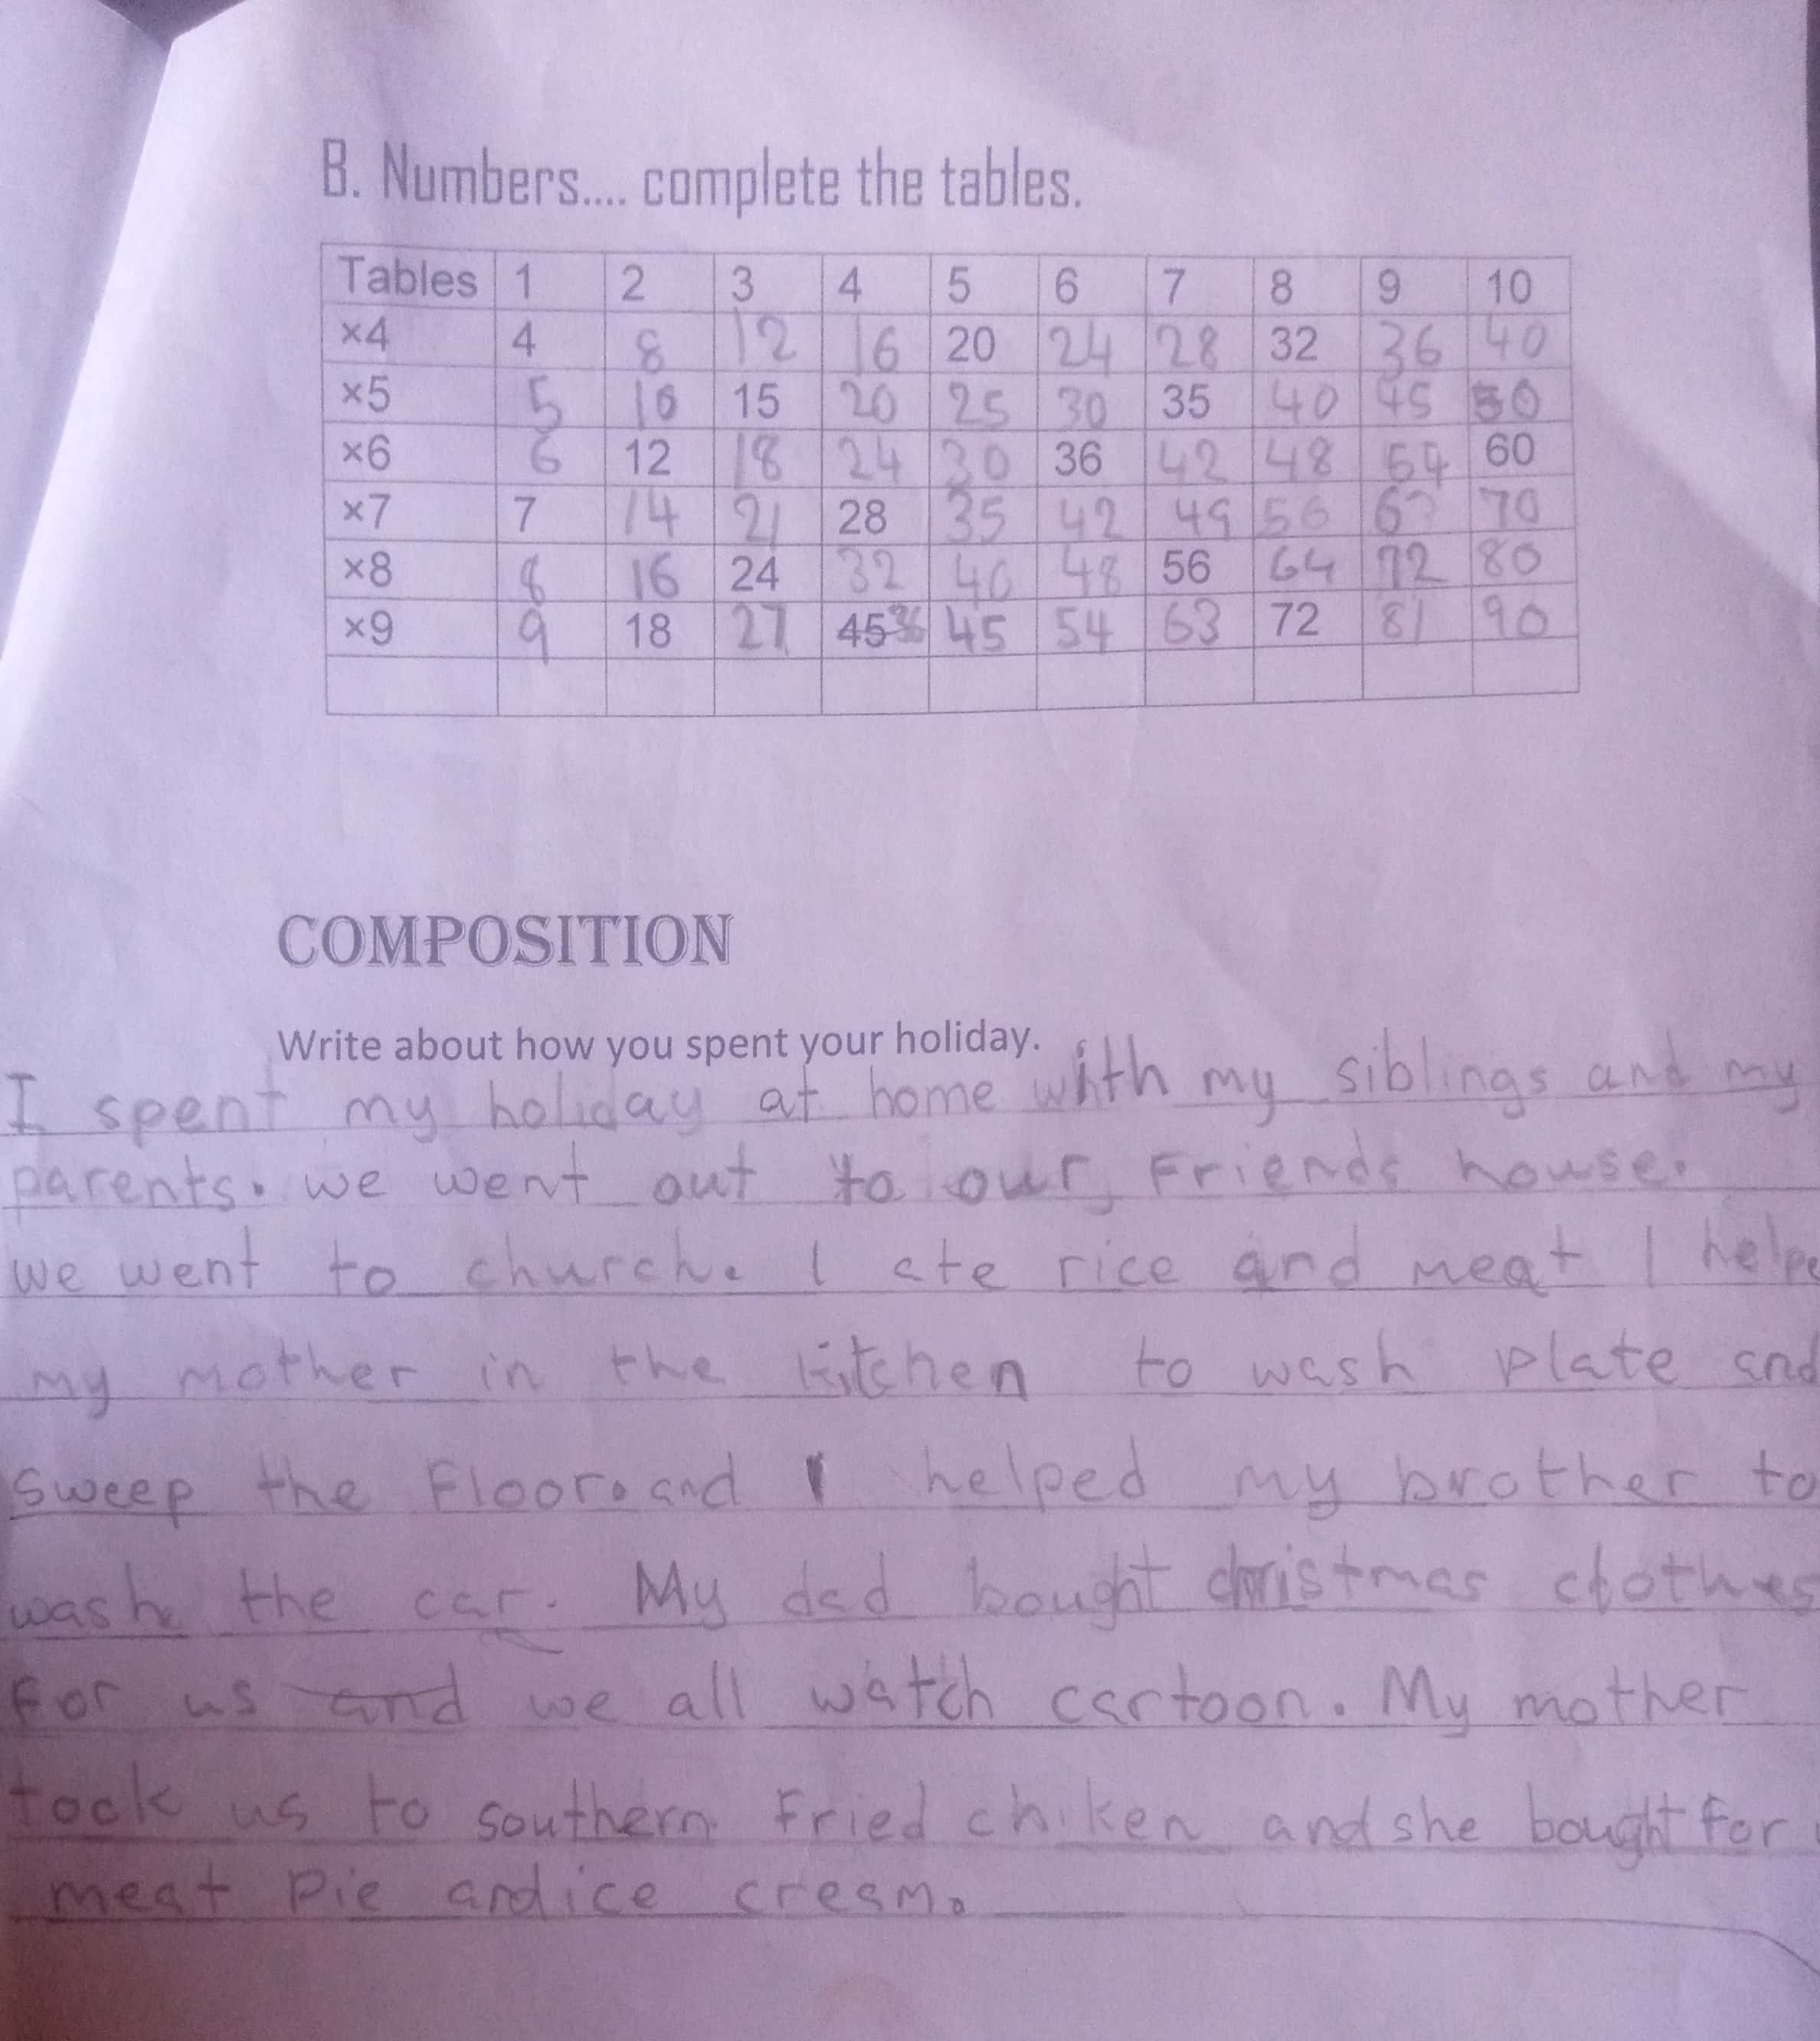 B. Numbers.... complete the tables.
Tables 1 2 3 4 5 6 7 8 9 10
×4 4 8 12 16 20 24 28 32 36 40
×5 5 10 15 20 25 30 35 40 45 50
×6 6 12 18 24 30 36 42 48 54 60
×7 7 14 21 28 35 42 49 56 63 70
×8 8 16 24 32 40 48 56 64 72 80
×9 9 18 27 45 36 45 54 63 72 81 90
COMPOSITION
Write about how you spent your holiday.
I spent my holiday at home with my siblings and my
parents. we went out to our Friends house.
we went to church. I ate rice and meat I helpe
my mother in the kitchen to wash plate and
sweep the Floor. and I helped my brother to
wash the car. My dad bought christmas clothes
For us and we all watch cartoon. My mother
took us to southern Fried chiken and she bought for
meat pie and ice cream.